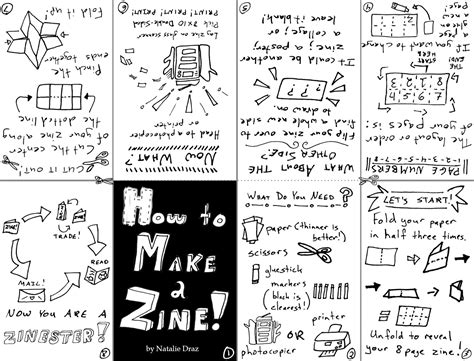 How to
MAKE
a
ZINE!
by Natalie Draz
1
WHAT DO YOU NEED?
paper (thinner is
better!)
scissors
gluestick
markers
(black is
clearest!)
OR
printer
photocopier
2
LET'S START!
Fold your paper
in half three times.
Unfold to reveal
your 8 page zine!
3
PAGE NUMBERS!!
1-2-3-4-5-6-7-8
The layout or order
of your pages is:
START
HERE
THE
END
If you want to change
4
WHAT ABOUT THE
OTHER SIDE?
Flip your zine over to
find a whole new side
to draw on.
? ? ?
It could be another
zine, a poster,
a collage, or
leave it blank!
5
NOW WHAT?
Head to a photocopier
or printer
Lay zine on glass scanner
PRINT! PRINT! PRINT!
6
Cut it out!
Cut the center
of your zine along
the dotted line
Pinch the
ends together
Fold it up!
TRADE!
READ
MAIL!
NOW YOU ARE A
ZINESTER!
8